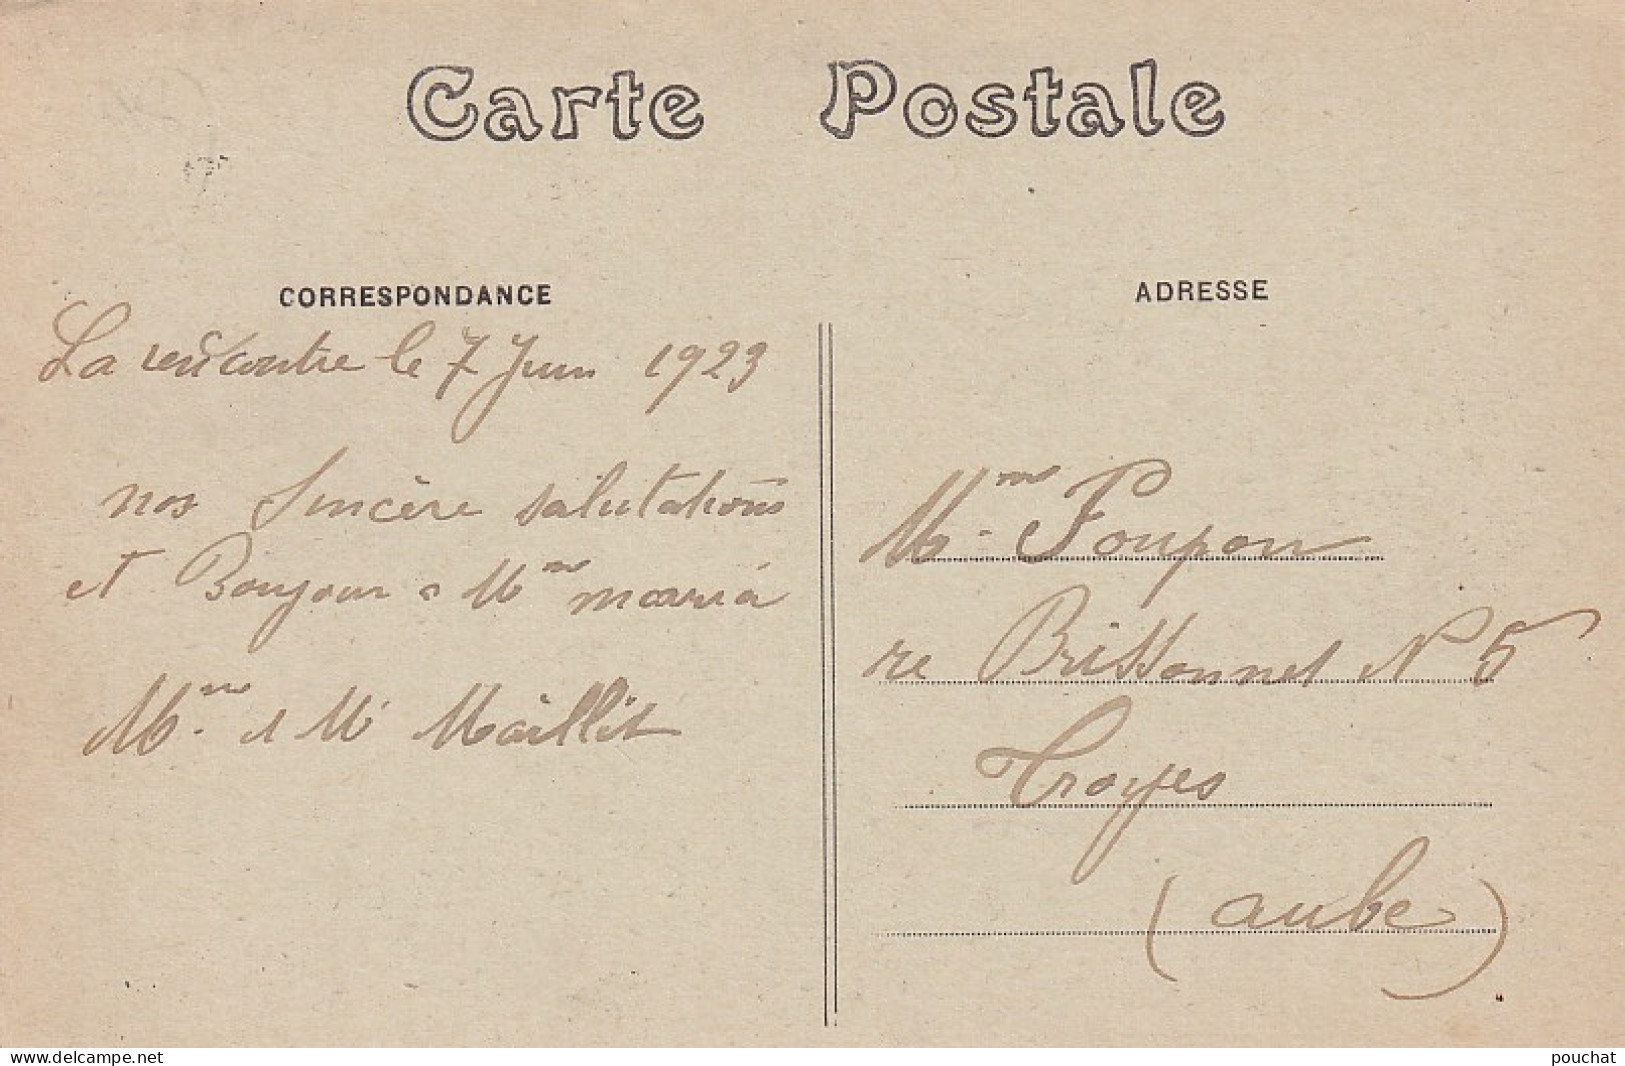 Carte Postale
CORRESPONDANCE
La rencontre le 7 Juin 1923
nos Sincère salutations
et Bonjour a Mme maria
Mme et Mr Maillit
ADRESSE
Mme Poupon
re Brissonnet N 5
Troyes
(aube)
www.delcampe.net
pouchat